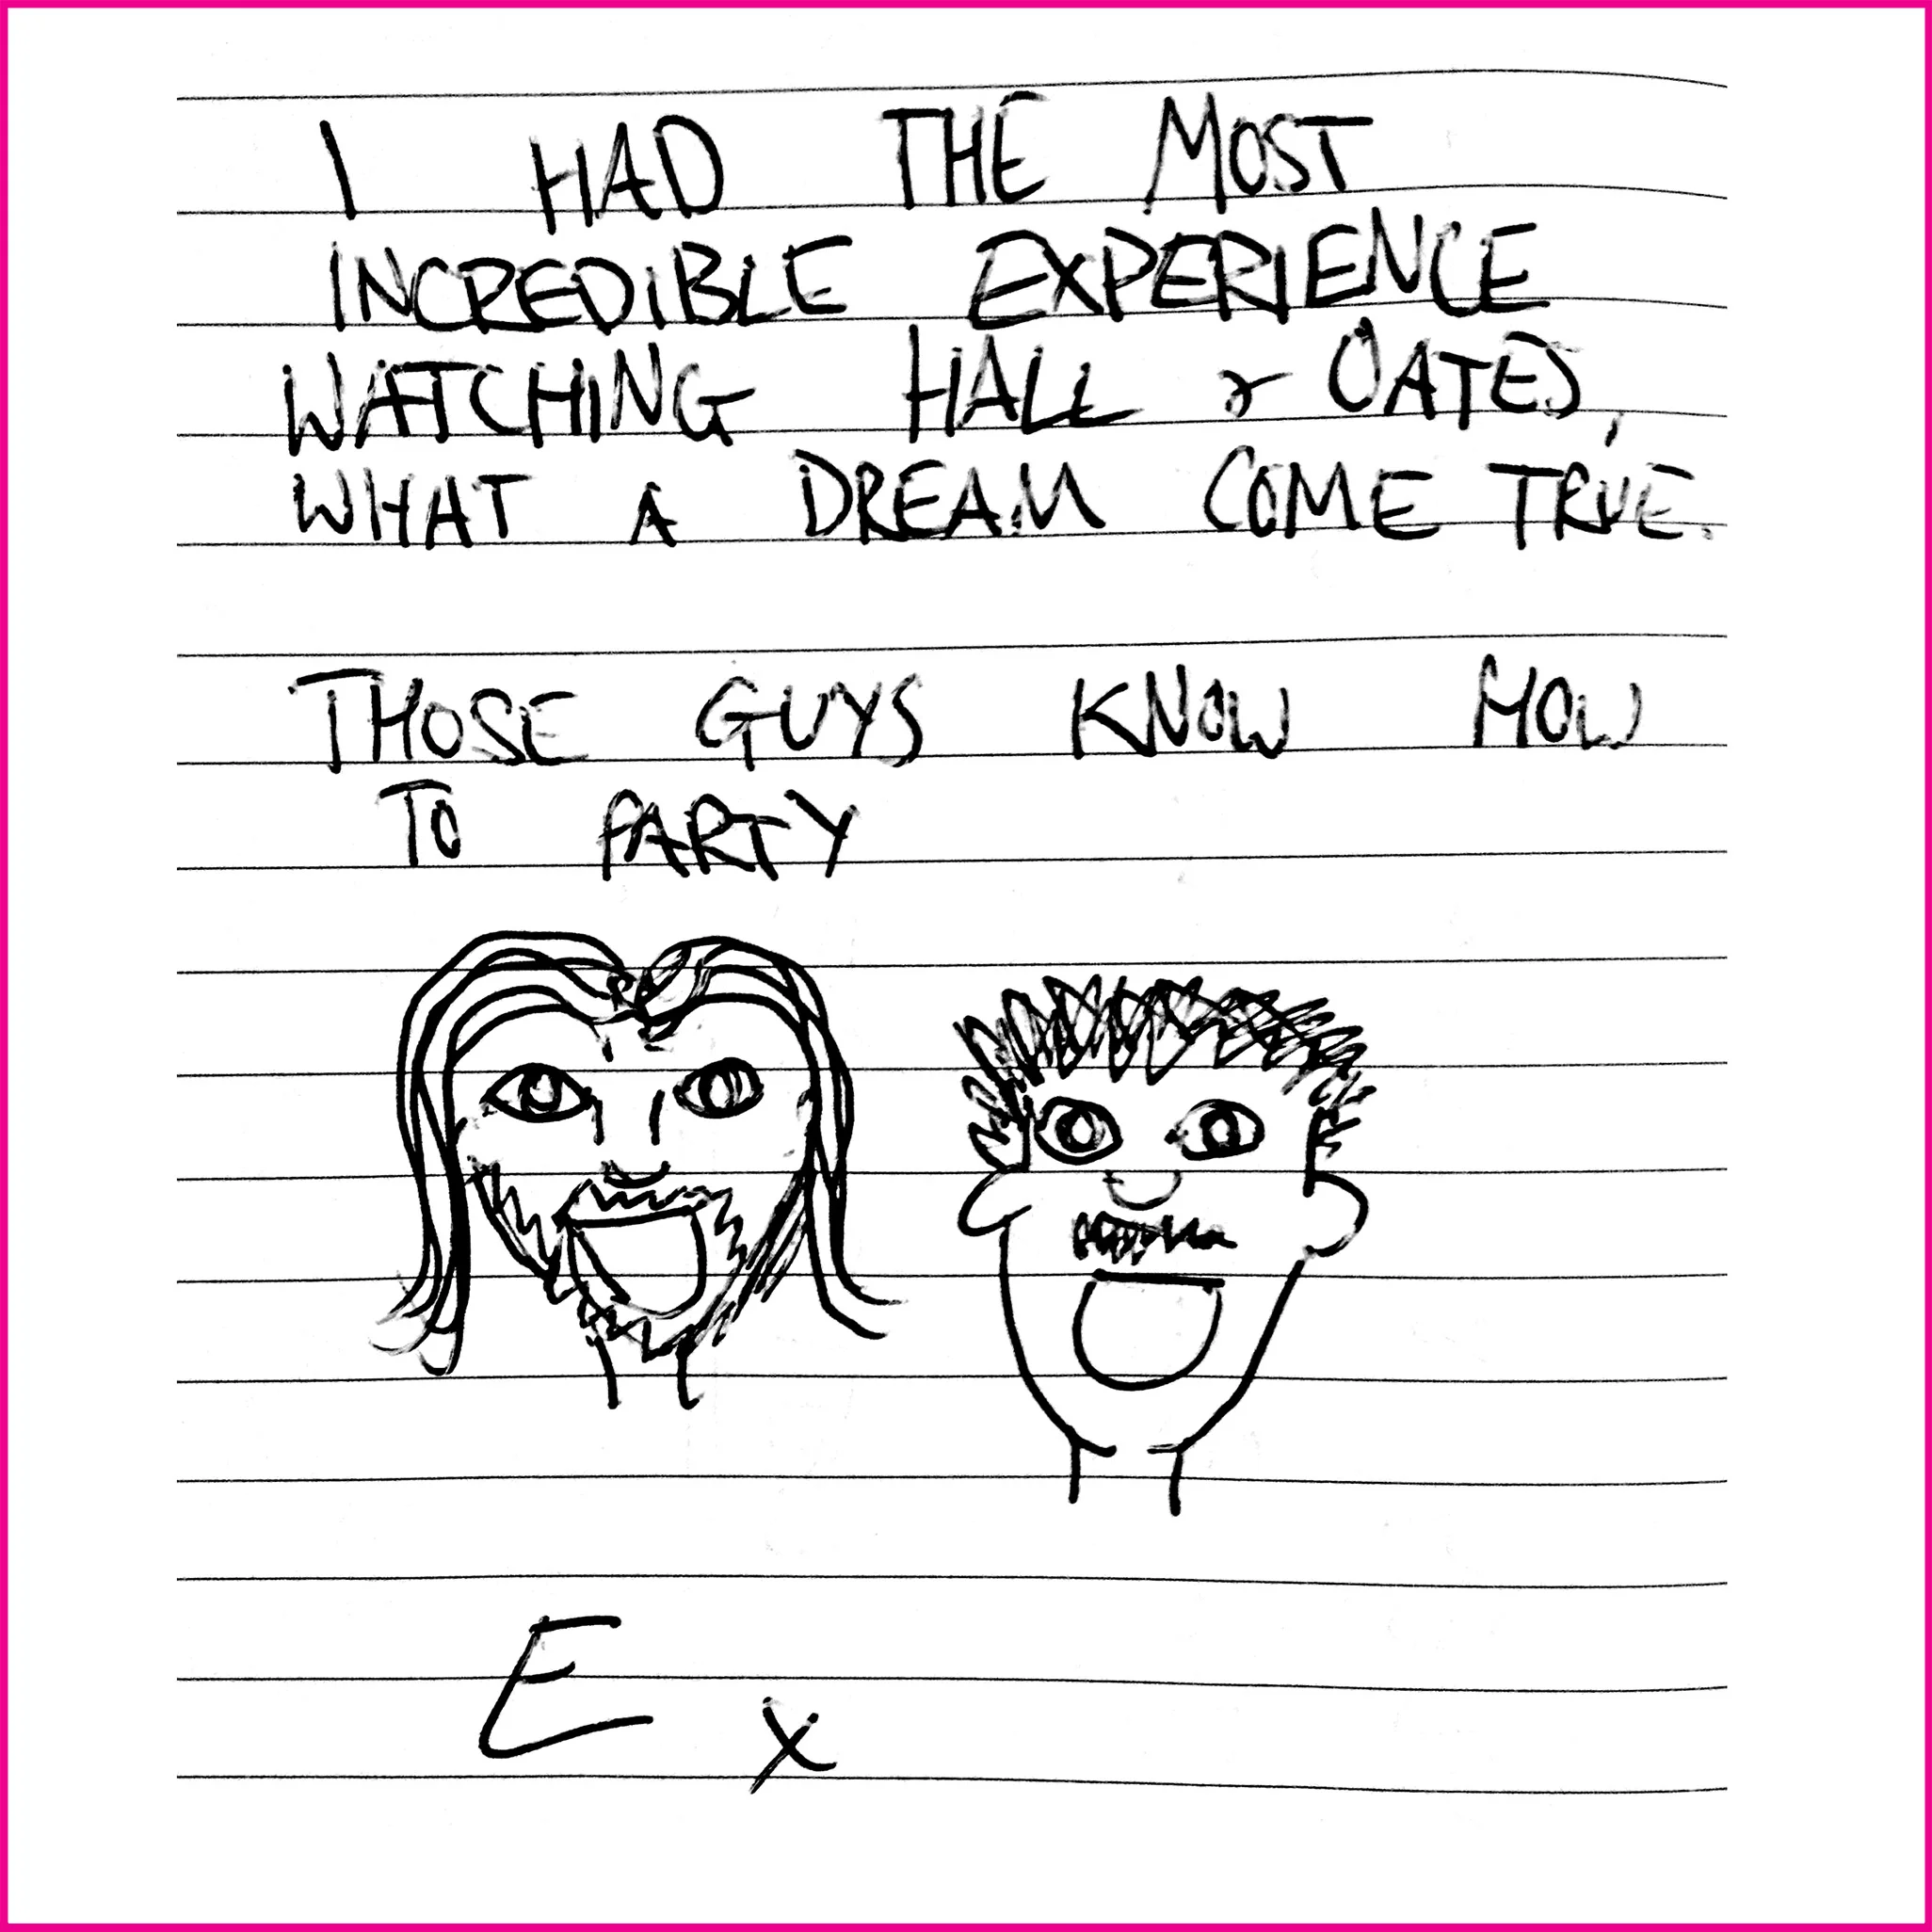 I HAD THE MOST
INCREDIBLE EXPERIENCE
WATCHING HALL & OATES,
WHAT A DREAM COME TRUE.
THOSE GUYS KNOW HOW
TO PARTY
E x